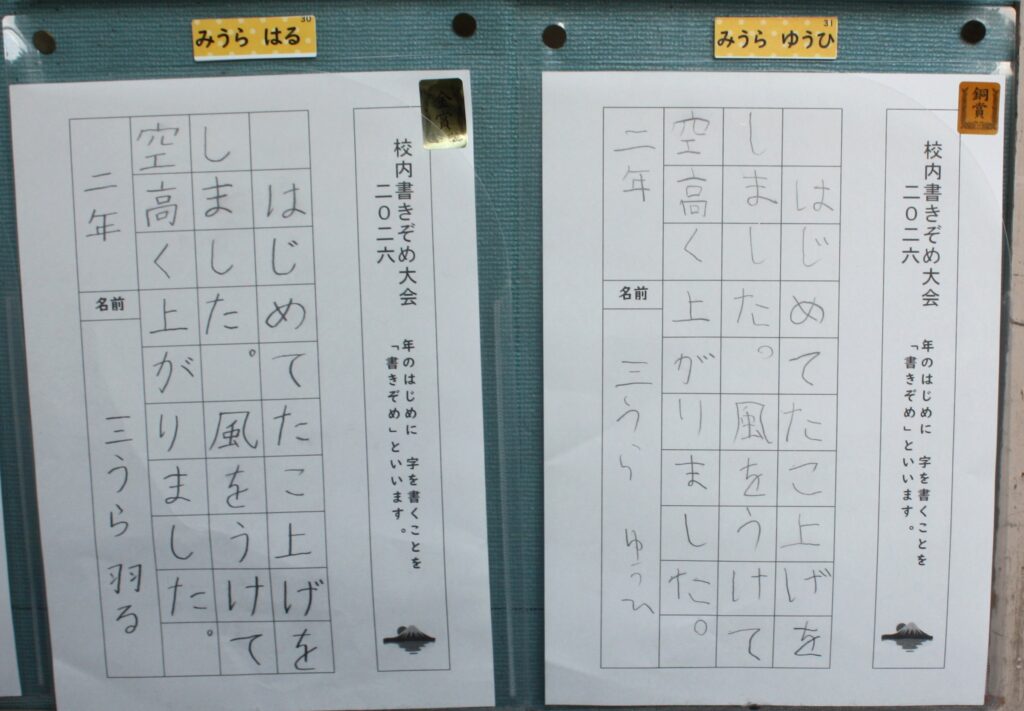 30
みうら はる
金賞
校内書きぞめ大会
二〇二六
年のはじめに 字を書くことを
「書きぞめ」といいます。
はじめてたこ上げを
しました。風をうけて
空高く上がりました。
二年
名前
三うら 羽る
31
みうら ゆうひ
銅賞
校内書きぞめ大会
二〇二六
年のはじめに 字を書くことを
「書きぞめ」といいます。
はじめてたこ上げを
しました。風をうけて
空高く上がりました。
二年
名前
三うら ゆうひ